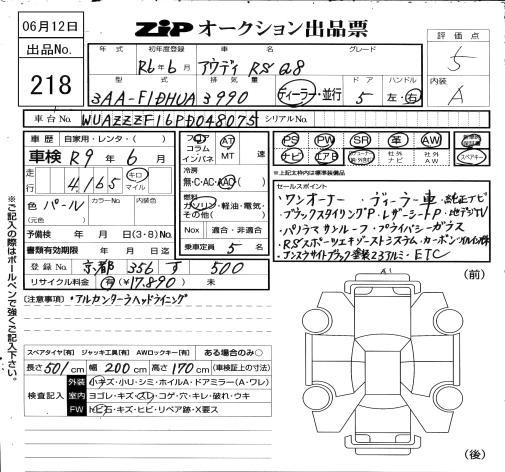 06月12日
ZiP オークション出品票
評価点
5
出品No.
218
年式 初年度登録 車名 グレード
R6年6月 アウディ RS Q8
型式 排気量 ドア ハンドル
3AA-F1DHUA 3990 ディーラー・並行 5 左・右
内装
A
車台No. WUAZZZF16PD048075 シリアルNo.
車歴 自家用・レンタ・( )
車検 R9年6月
走行 4,165 キロ マイル
色 パール カラーNo. 内装色
(元色)
予備検 年 月 日 (3・8) No.
書類有効期限 年 月 日迄
登録No. 京都 356 す 500
リサイクル料金 有 (¥17,890) 未
フロア コラム インパネ
AT
MT 速
冷房
無・C・AC・AAC
燃料
ガソリン・軽油・電気・
その他( )
Nox 適合・非適合
乗車定員 5 名
PS PW SR 革 AW
ナビ エアB 社外ナビ 社外AW スペアキー
※上記太枠内は標準装備品
セールスポイント
ワンオーナー・ディーラー車・純正ナビ
・ブラックスタイリングP・レザーシートP・地デジTV
・パノラマサンルーフ・プライバシーガラス
・RSスポーツエキゾーストシステム・カーボン
23アルミ・ETC
(注意事項)・アルカンターラヘッドライニング
※ご記入の際はボールペンで強くご記入下さい。
(前)
スペアタイヤ[有] ジャッキ工具[有] AWロックキー[有] ある場合のみ○
長さ 501 cm 幅 200 cm 高さ 170 cm (車検証上の寸法)
検査記入
外装 小キズ・小U・シミ・ホイルA・ドアミラー(A・ワレ)
室内 ヨゴレ・キズ・スレ・コゲ・穴・キレ・破れ・ウキ
FW トビ石・キズ・ヒビ・リペア跡・X要ス
(後)